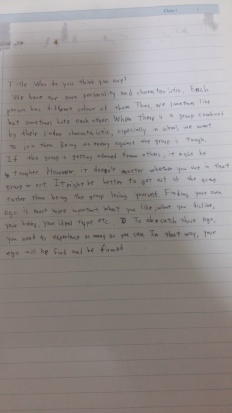 Title: Who do you think you are?
We have our own personality and characteristic. Each
person has different colour of them. Thus, we sometimes like
but sometimes hate each other. When there is a group combined
by their similar characteristic, especially in school, we want
to join them. Being an enemy against the group is tough.
If this group is getting ... from others, it might be
tougher. However, it doesn't matter whether you are in that
group or not. It might be better to get out of the group
rather than being the group losing yourself. Finding your own
ego is most more important. What you like, what you dislike,
your hobby, your ideal type etc. To catch those ego,
you need to experience as many as you can. In that way, your
ego will be find and be formed.